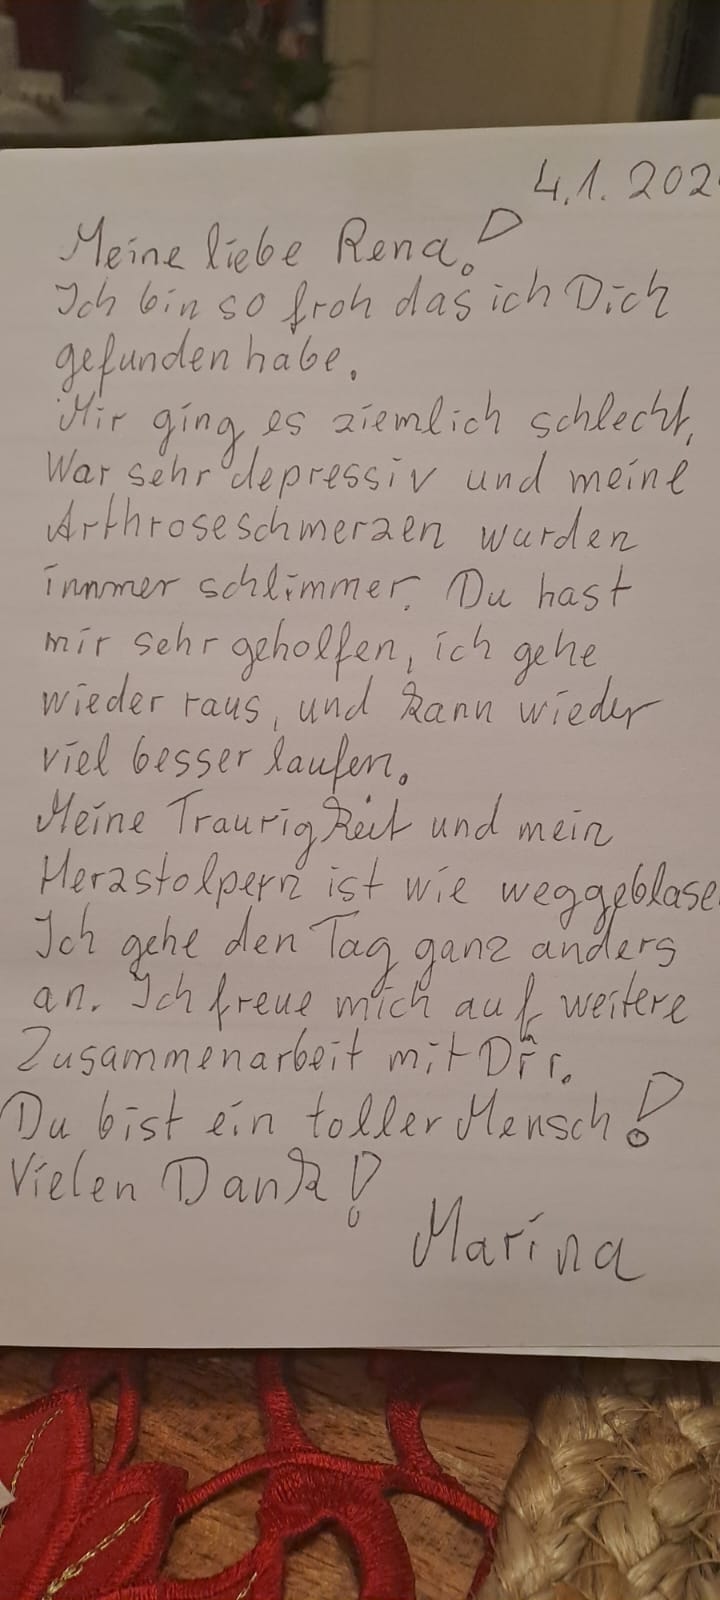 4.1.202
Meine liebe Rena!
Ich bin so froh das ich Dich
gefunden habe.
Mir ging es ziemlich schlecht,
War sehr depressiv und meine
Arthroseschmerzen wurden
immer schlimmer. Du hast
mir sehr geholfen, ich gehe
wieder raus, und kann wieder
viel besser laufen.
Meine Traurigkeit und mein
Herzstolpern ist wie weggeblase
Ich gehe den Tag ganz anders
an. Ich freue mich auf weitere
Zusammenarbeit mit Dir.
Du bist ein toller Mensch!
Vielen Dank!
Marina